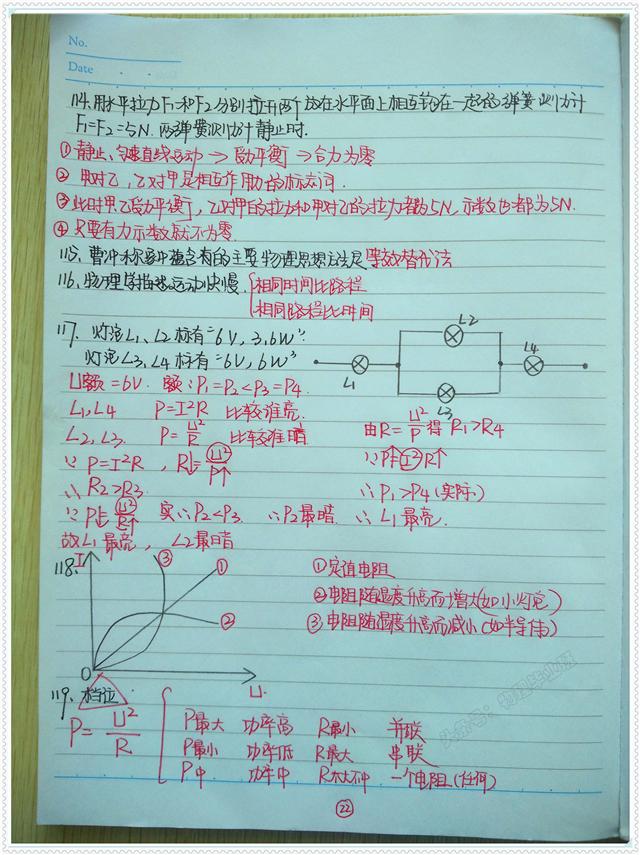 No.
Date
114、用水平拉力F1和F2分别拉开两个放在水平面上相互钩在一起的弹簧测力计
F1=F2=5N. 两弹簧测力计静止时.
①静止、匀速直线运动→受力平衡→合力为零
②甲对乙,乙对甲是相互作用力的标志词.
③此时甲乙受力平衡,乙对甲的拉力和甲对乙的拉力都为5N,示数也都为5N.
④只要有力示数就不为零.
115、曹冲称象中蕴含有的主要物理思想方法是等效替代法
116、物理学描述运动快慢 相同时间比路程
相同路程比时间
117、灯泡L1、L2标有"6V,3.6W"
灯泡L3、L4标有"6V,6W"
L1 L2 L3 L4
U额=6V. 额:P1=P2<P3=P4.
L1,L4 P=I²R 比较谁亮.
L2,L3. P=U²/R 比较谁暗 由R=U²/P得R1>R4
∵P=I²R, R↓=U²/P↑ ∵P↑I²R↑
∴R2>R3. ∴P1>P4(实际)
∵P↓U²/R↑ 实∴P2<P3. ∴P2最暗. ∴L1最亮.
故L1最亮, L2最暗
118、 I ③ ① ② O U
①定值电阻
②电阻随温度升高而增大(如小灯泡)
③电阻随温度升高而减小(如半导体)
119、档位
P=U²/R
P最大 功率高 R最小 并联
P最小 功率低 R最大 串联
P中 功率中 R不大不小 一个电阻(任何)
22